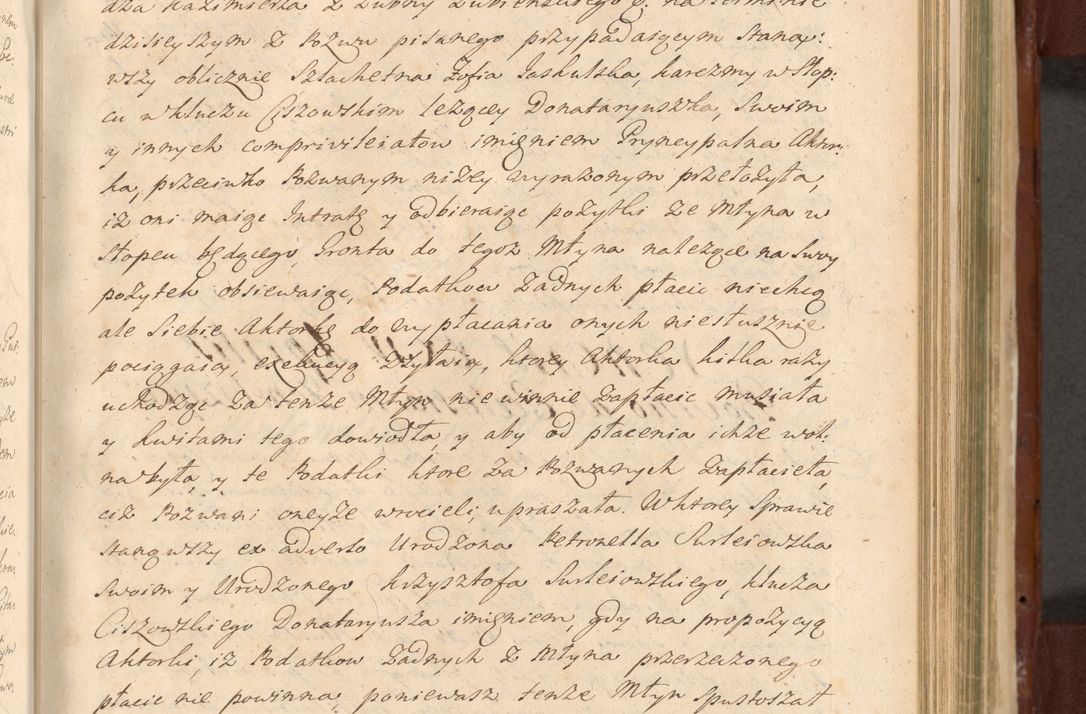 dza Kazimierza z Łubny Łubienskiego g. na terminie
dzisieyszym z Pozwu pisanego przypadaiącym stana:
wszy oblicznie Szlachetna Zofia Jaskulska, karczmy w Stop:
cu w kluczu Ciszowskim leżącey Donataryuszka, Swoim
y innych comprivileiatow imięniem Pryncypalna Aktor:
ka, przeciwko Pozwanym niżey wyrażonym przełożyła,
iż oni maiąc Intratę y odbieraiąc pożytki ze Młyna w
Stopcu będącego, Gronta do tegoż Młyna należące na Swoy
pożytek obsiewaiąc, Podatkow żadnych płacic niechcą
ale Siebie Aktorkę do wypłacania onych niesłusznie
pociągaią, exekucyą zsyłaią, ktorey Aktorka kilka razy
uchodząc za tenże Młyn niewinnie zapłacic musiała
y kwitami tego dowiodła y aby od płacenia ichże wol:
na była, y te Podatki ktore za Pozwanych zapłaciła,
ciż Pozwani oneyże wrocili, upraszała. W ktorey Sprawie
stanąwszy ex adverso Urodzona Petronella Surleiowska
Swoim y Urodzonego Krzysztofa Surleiowskiego, klucza
Ciszowskiego Donataryusza imięniem, gdy na propozycyą
Aktorki, iż Podatkow żadnych z Młyna przerzeczonego
płacic nie powinna, poniewasz tenże Młyn Spustoszał